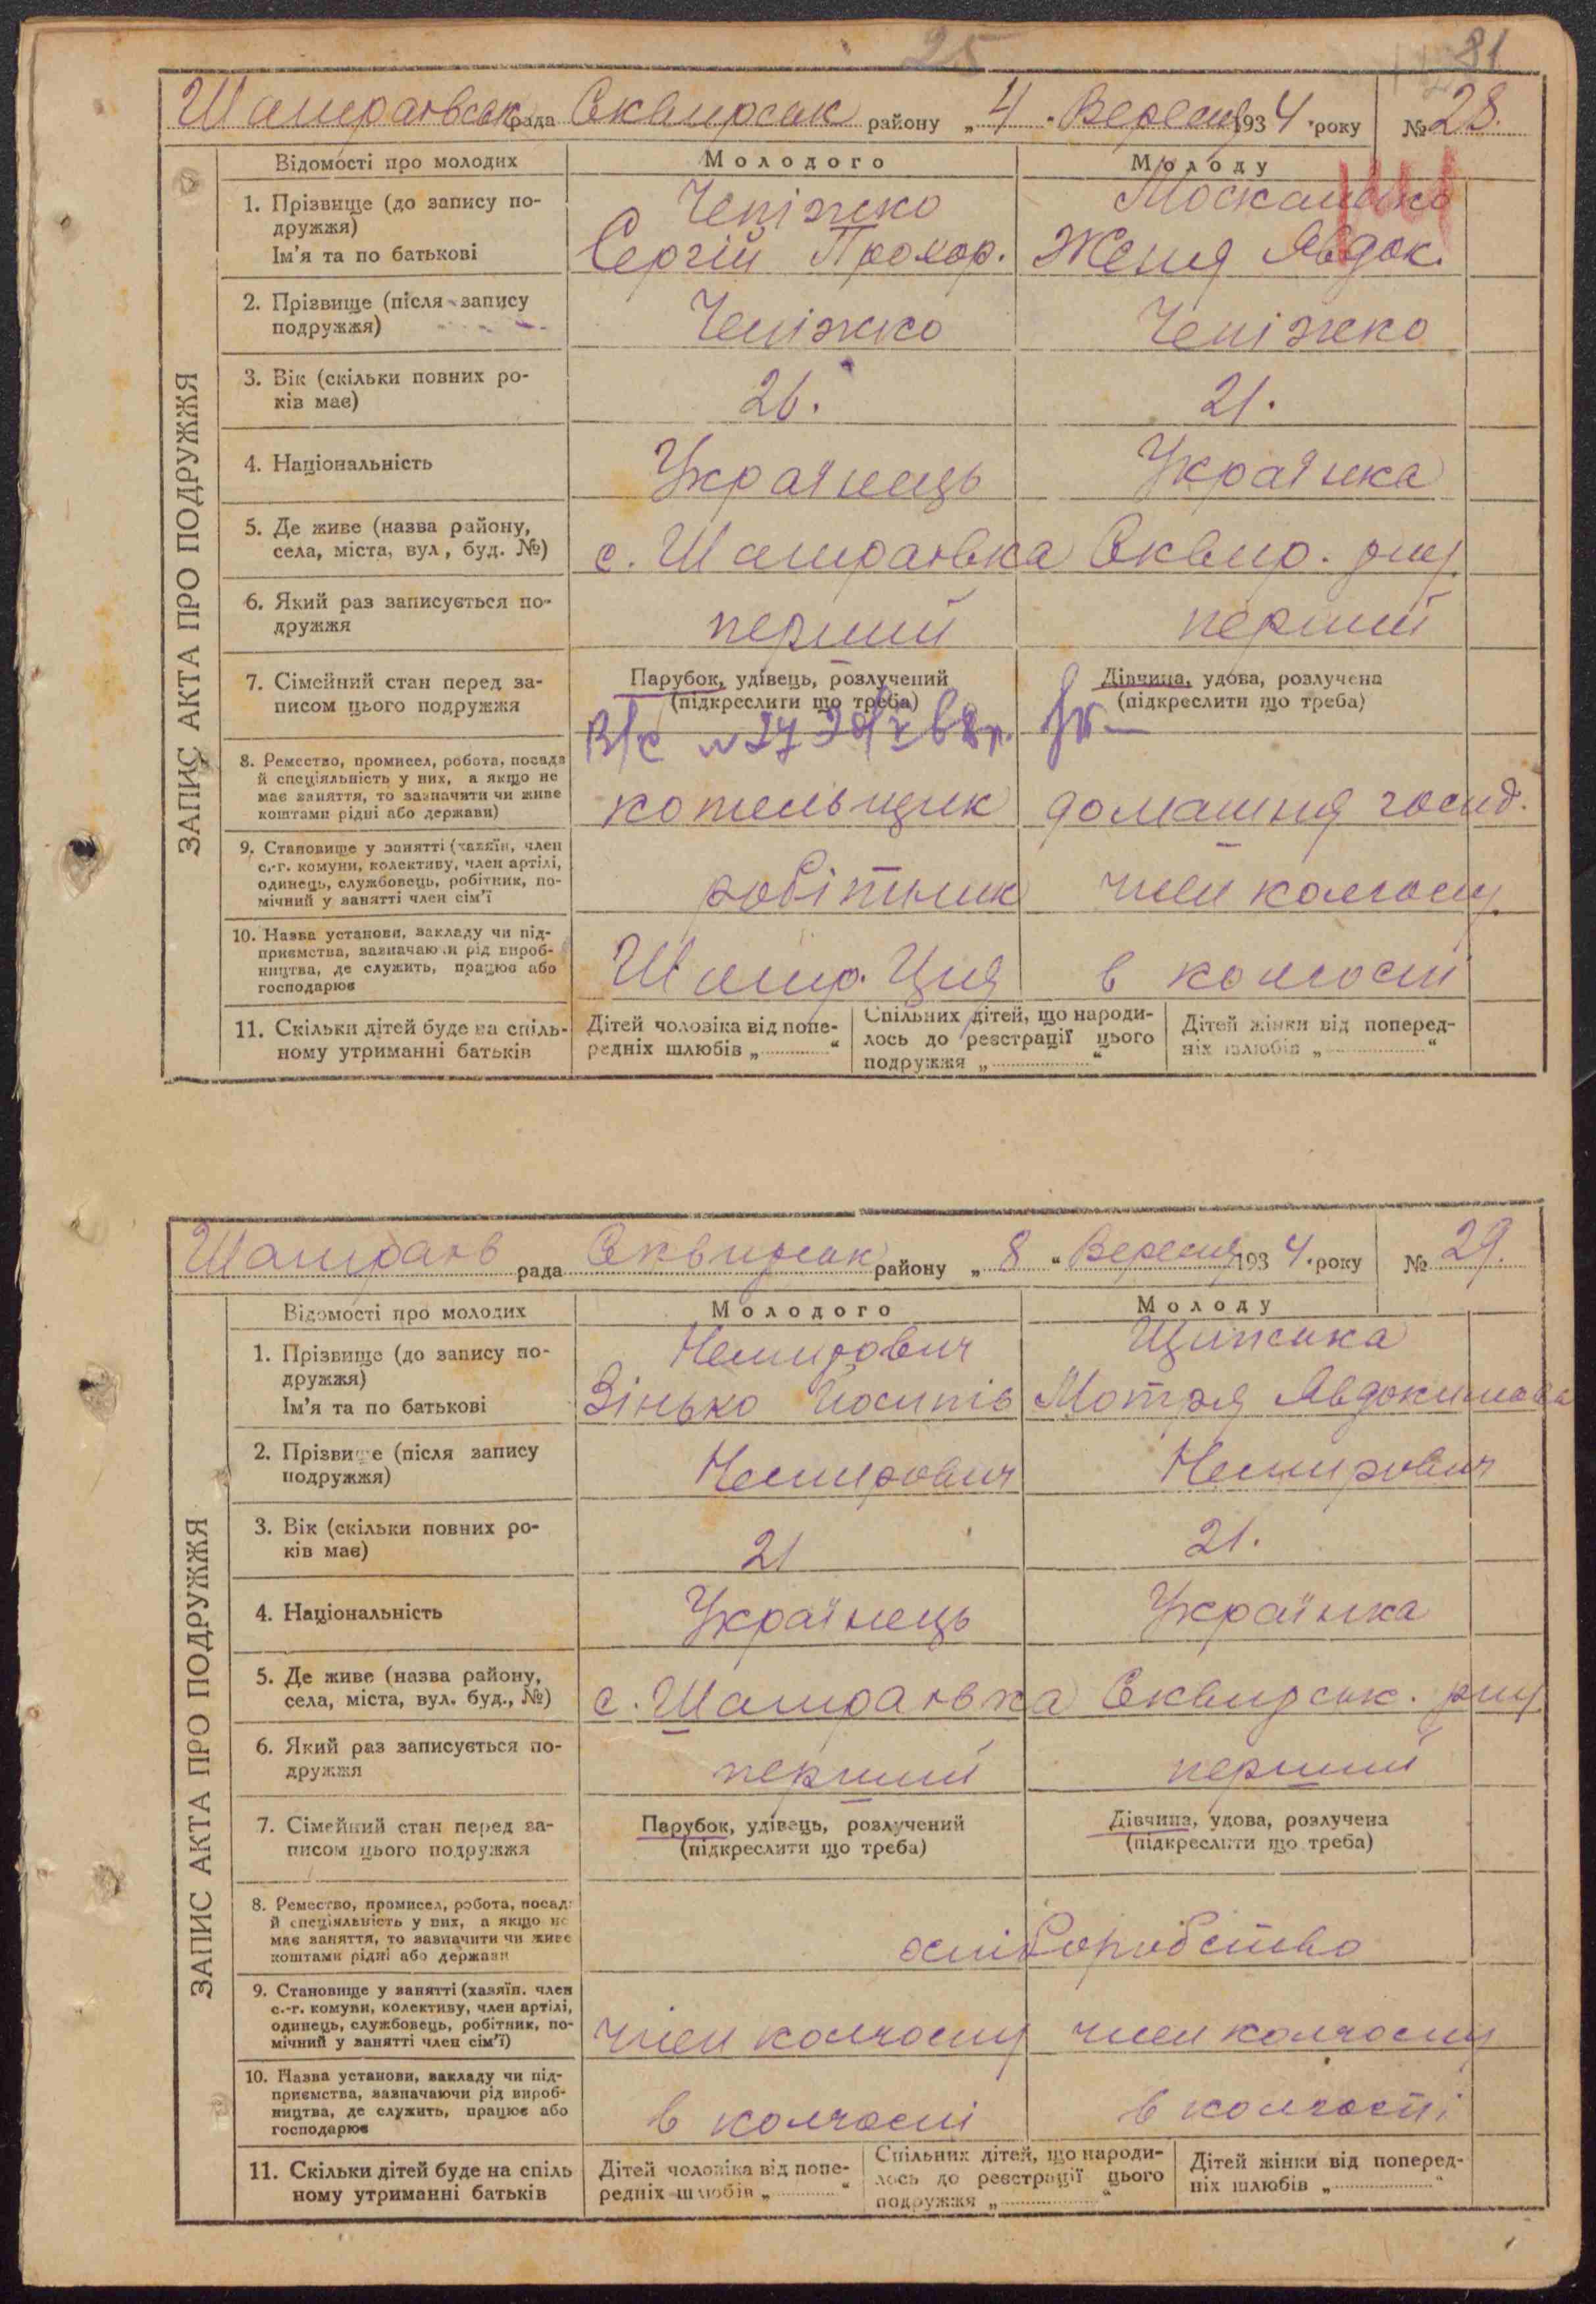 25
81
Шамраївськ рада Сквирськ району „4“ Вересня 1934 року №28.
ЗАПИС АКТА ПРО ПОДРУЖЖЯ
Відомості про молодих Молодого Молоду
1. Прізвище (до запису по-
дружжя)
Чепіжко
Ім'я та по батькові
Сергій Прохор. Женя Явдок.
2. Прізвище (після запису
подружжя)
Чепіжко Чепіжко
3. Вік (скільки повних ро-
ків має)
26. 21.
4. Національність
Українець Українка
5. Де живе (назва району,
села, міста, вул, буд. №)
с. Шамраївка Сквир. р-ну
6. Який раз записується по-
дружжя
перший перший
7. Сімейний стан перед за-
писом цього подружжя
Парубок, удівець, розлучений
(підкреслити що треба)
Дівчина, удова, розлучена
(підкреслити що треба)
8. Ремество, промисел, робота, посада
й спеціяльність у них, а якщо не
має заняття, то зазначити чи живе
коштами рідні або держави)
котельщик домашня госпд.
9. Становище у занятті (хазяїн, член
с.-г. комуни, колективу, член артілі,
одинець, службовець, робітник, по-
мічний у занятті член сім'ї
робітник член колгоспу
10. Назва установи, закладу чи під-
приємства, зазначаючи рід вироб-
ництва, де служить, працює або
господарює
Шамр. Ц-ня в колгоспі
11. Скільки дітей буде на спіль-
ному утриманні батьків
Дітей чоловіка від попе-
редніх шлюбів „ “
Спільних дітей, що народи-
лось до реєстрації цього
подружжя „ “
Дітей жінки від поперед-
ніх шлюбів „ “
Шамраїв рада Сквирськ району „8“ Вересня 1934 року №29.
ЗАПИС АКТА ПРО ПОДРУЖЖЯ
Відомості про молодих Молодого Молоду
1. Прізвище (до запису по-
дружжя)
Немирович
Ім'я та по батькові
Зінько Йосипів Мотря Явдокимова
2. Прізвище (після запису
подружжя)
Немирович Немирович
3. Вік (скільки повних ро-
ків має)
21 21.
4. Національність
Українець Українка
5. Де живе (назва району,
села, міста, вул. буд., №)
с. Шамраївка Сквирськ. р-ну
6. Який раз записується по-
дружжя
перший перший
7. Сімейний стан перед за-
писом цього подружжя
Парубок, удівець, розлучений
(підкреслити що треба)
Дівчина, удова, розлучена
(підкреслити що треба)
8. Ремество, промисел, робота, посада
й спеціяльність у них, а якщо не
має заняття, то зазначити чи живе
коштами рідні або держави
хліборобство
9. Становище у занятті (хазяїн. член
с.-г. комуни, колективу, член артілі,
одинець, службовець, робітник, по-
мічний у занятті член сім'ї)
член колгоспу член колгоспу
10. Назва установи, закладу чи під-
приємства, зазначаючи рід вироб-
ництва, де служить, працює або
господарює
в колгоспі в колгоспі
11. Скільки дітей буде на спіль
ному утриманні батьків
Дітей чоловіка від попе-
редніх шлюбів „ “
Спільних дітей, що народи-
лось до реєстрації цього
подружжя „ “
Дітей жінки від поперед-
ніх шлюбів „ “